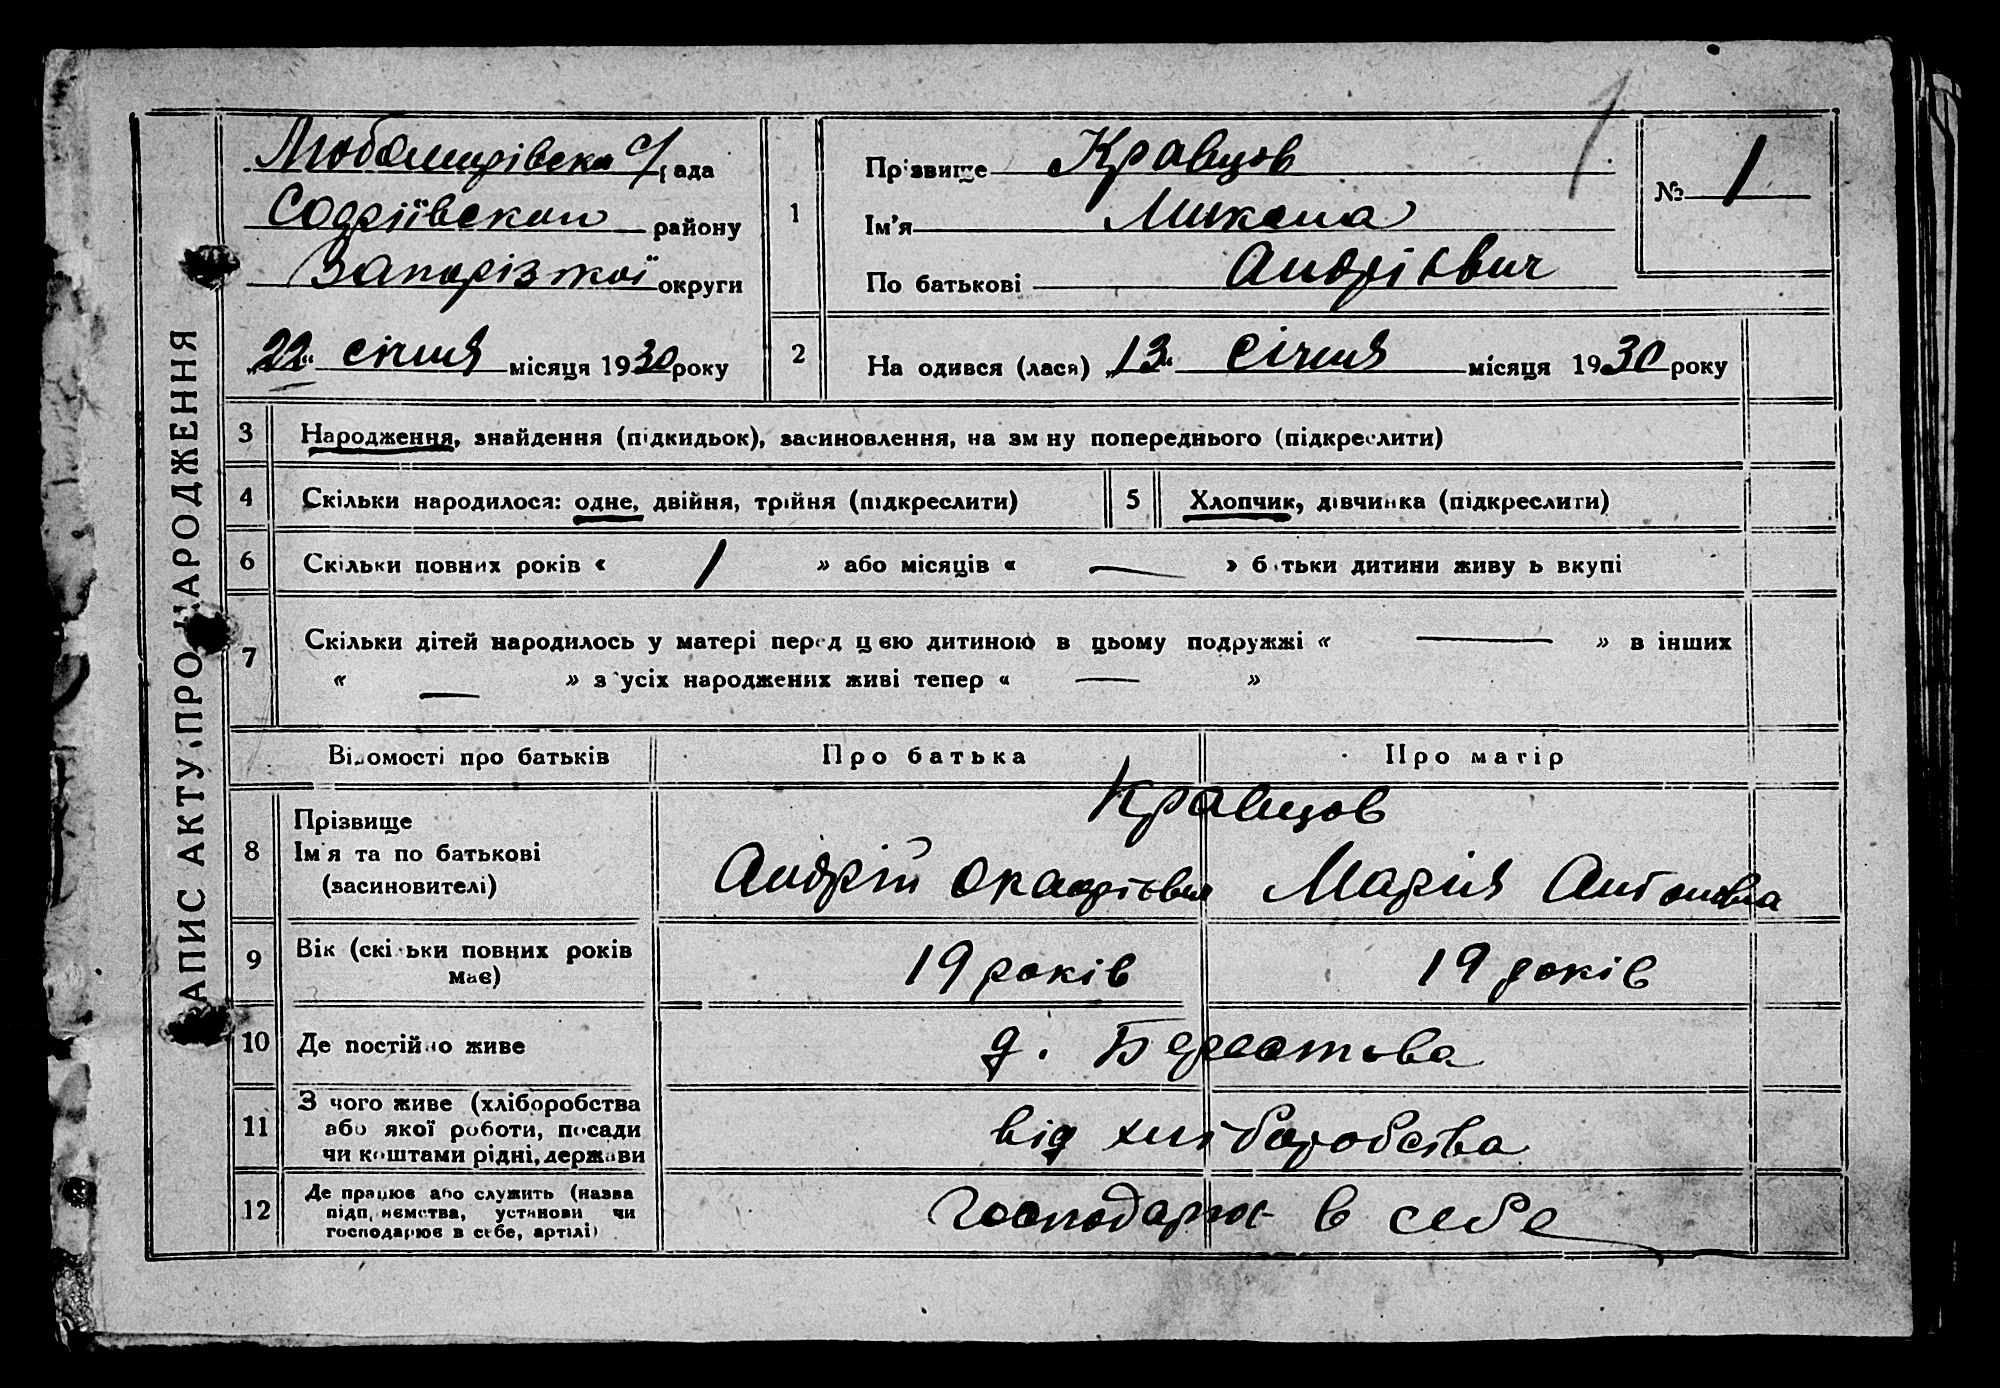 ЗАПИС АКТУ ПРО НАРОДЖЕННЯ
Любомирівска с/рада
Софіївскои району
Запорізкої округи
„22“ січня місяця 1930 року
1
Прізвище Кравцов
Ім'я Микола
По батькові Андрієвич
№ 1
2
На одився (лася) „13“ січня місяця 1930 року
3 Народження, знайдення (підкидьок), засиновлення, на зм ну попереднього (підкреслити)
4 Скільки народилося: одне, двійня, трійня (підкреслити)
5 Хлопчик, дівчинка (підкреслити)
6 Скільки повних років « 1 » або місяців « — » б тьки дитини живу ь вкупі
7 Скільки дітей народилось у матері перед цією дитиною в цьому подружжі « — » в інших
« — » з усіх народжених живі тепер « — »
Відомості про батьків Про батька Про матір
8 Прізвище
Ім'я та по батькові
(засиновителі)
Кравцов
Андрій Марія Антоновна
9 Вік (скільки повних років
має)
19 років 19 років
10 Де постійно живе
д. Берестова
11 З чого живе (хліборобства
або якої роботи, посади
чи коштами рідні, держави
від хліборобства
12 Де працює або служить (назва
підп иємства, установи чи
господарює в себе, артілі)
Господарює в себе